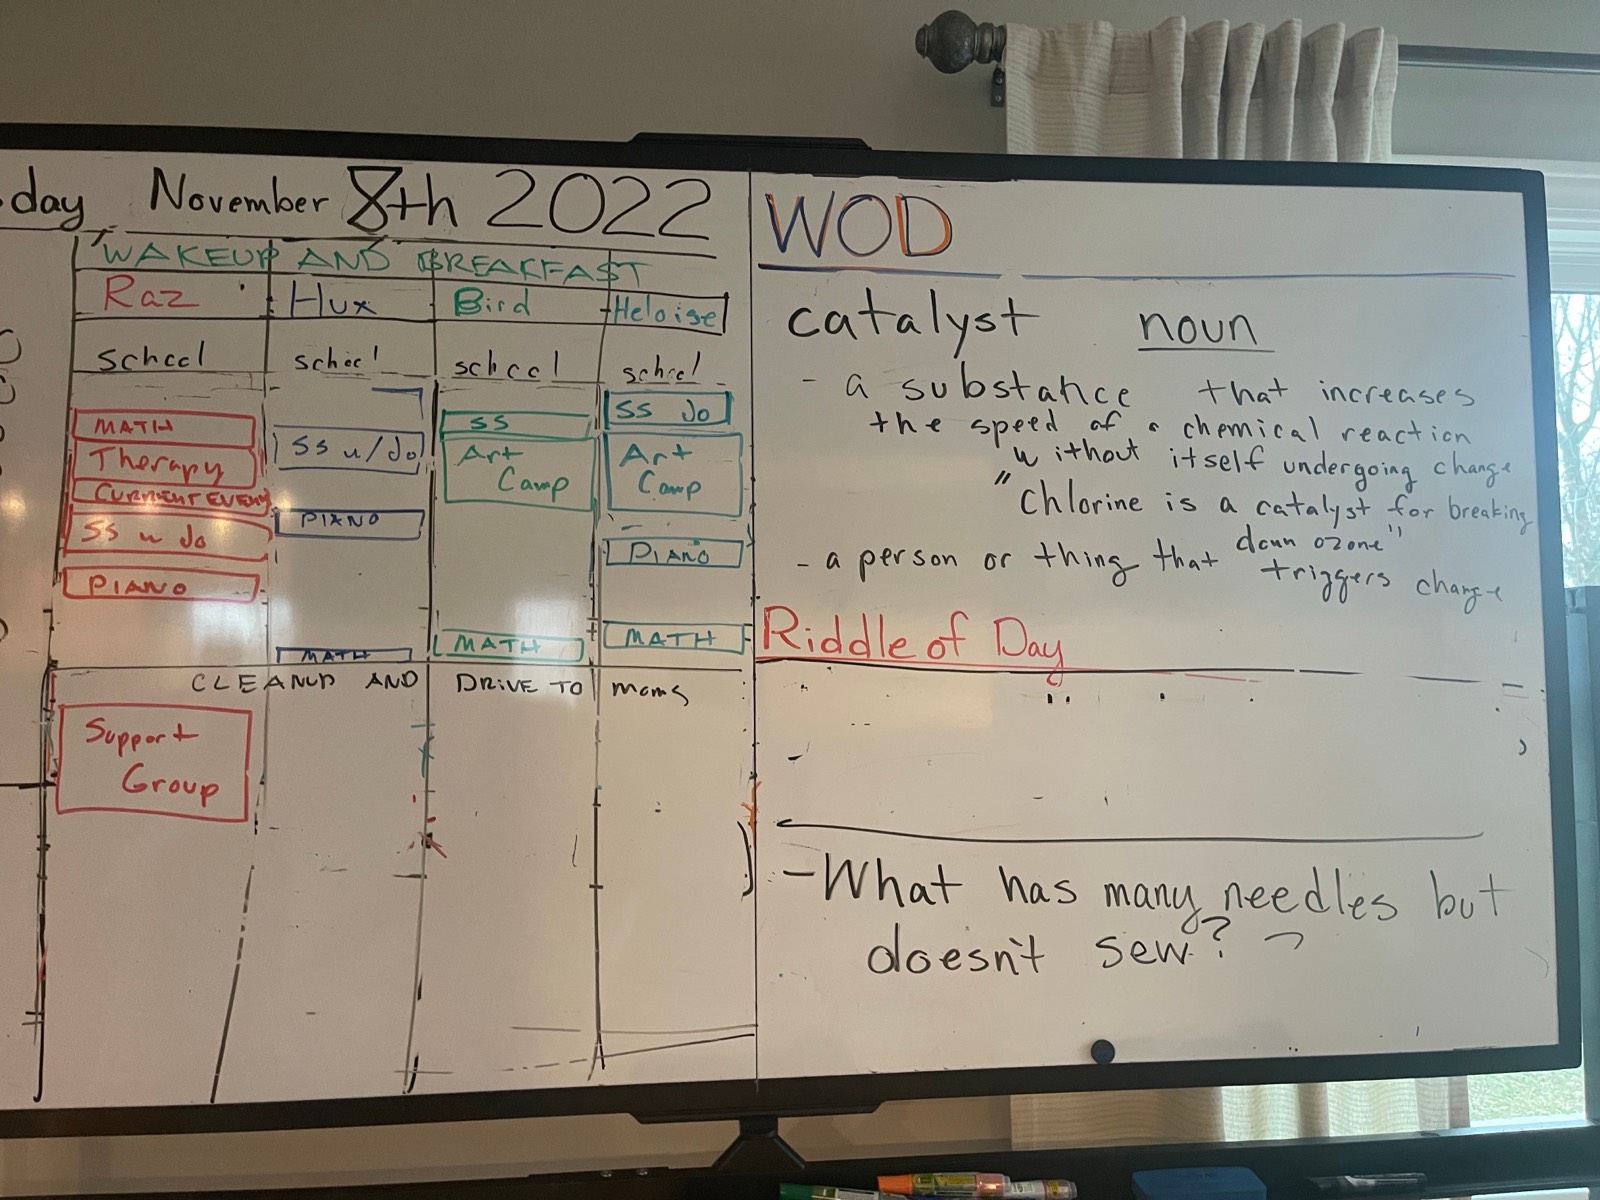 day November 8th 2022
WAKEUP AND BREAKFAST
Raz Hux Bird Heloise
school school school school
MATH
Therapy
CURRENT EVENTS
SS w Jo
PIANO
SS w/Jo
PIANO
MATH
SS
Art
Camp
MATH
SS Jo
Art
Camp
PIANO
MATH
CLEANUP AND DRIVE TO moms
Support
Group
WOD
catalyst noun
- a substance that increases
the speed of a chemical reaction
without itself undergoing change
"Chlorine is a catalyst for breaking
down ozone"
- a person or thing that triggers change
Riddle of Day
- What has many needles but
doesn't sew?